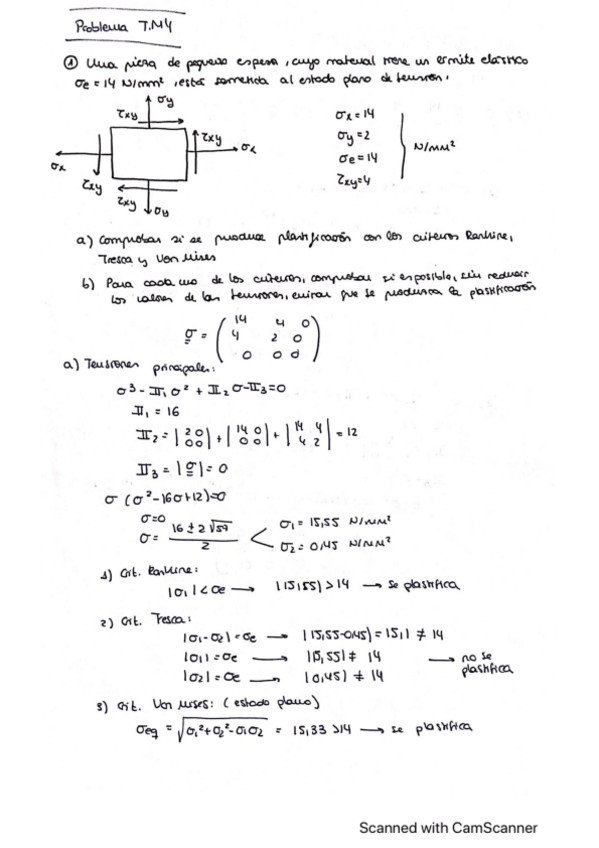 Problema T.M4
① Una pieza de pequeño espesor, cuyo material tiene un límite elástico
σe = 14 N/mm², está sometida al estado plano de tensión.
σy
τxy
τxy
σx
σx
τxy
τxy
σy
σx = 14
σy = 2
σe = 14
τxy = 4
N/mm²
a) Comprobar si se produce plastificación con los criterios Rankine,
Tresca y Von Mises
b) Para cada uno de los criterios, comprobar si es posible, sin reducir
los valores de las tensiones, evitar que se produzca la plastificación
σ = ( 14 4 0
4 2 0
0 0 0 )
a) Tensiones principales:
σ³ - II₁σ² + II₂σ - II₃ = 0
II₁ = 16
II₂ = |2 0; 0 0| + |14 0; 0 0| + |14 4; 4 2| = 12
II₃ = |σ| = 0
σ (σ² - 16σ + 12) = 0
σ = 0
σ = (16 ± 2√59) / 2
σ₁ = 15,55 N/mm²
σ₂ = 0,45 N/mm²
1) Crit. Rankine:
|σ₁| < σe → |15,55| > 14 → se plastifica
2) Crit. Tresca:
|σ₁ - σ₂| = σe → |15,55 - 0,45| = 15,1 ≠ 14
|σ₁| = σe → |15,55| ≠ 14 → no se
plastifica
|σ₂| = σe → |0,45| ≠ 14
3) Crit. Von Mises: (estado plano)
σeq = √σ₁² + σ₂² - σ₁σ₂ = 15,33 > 14 → se plastifica
Scanned with CamScanner